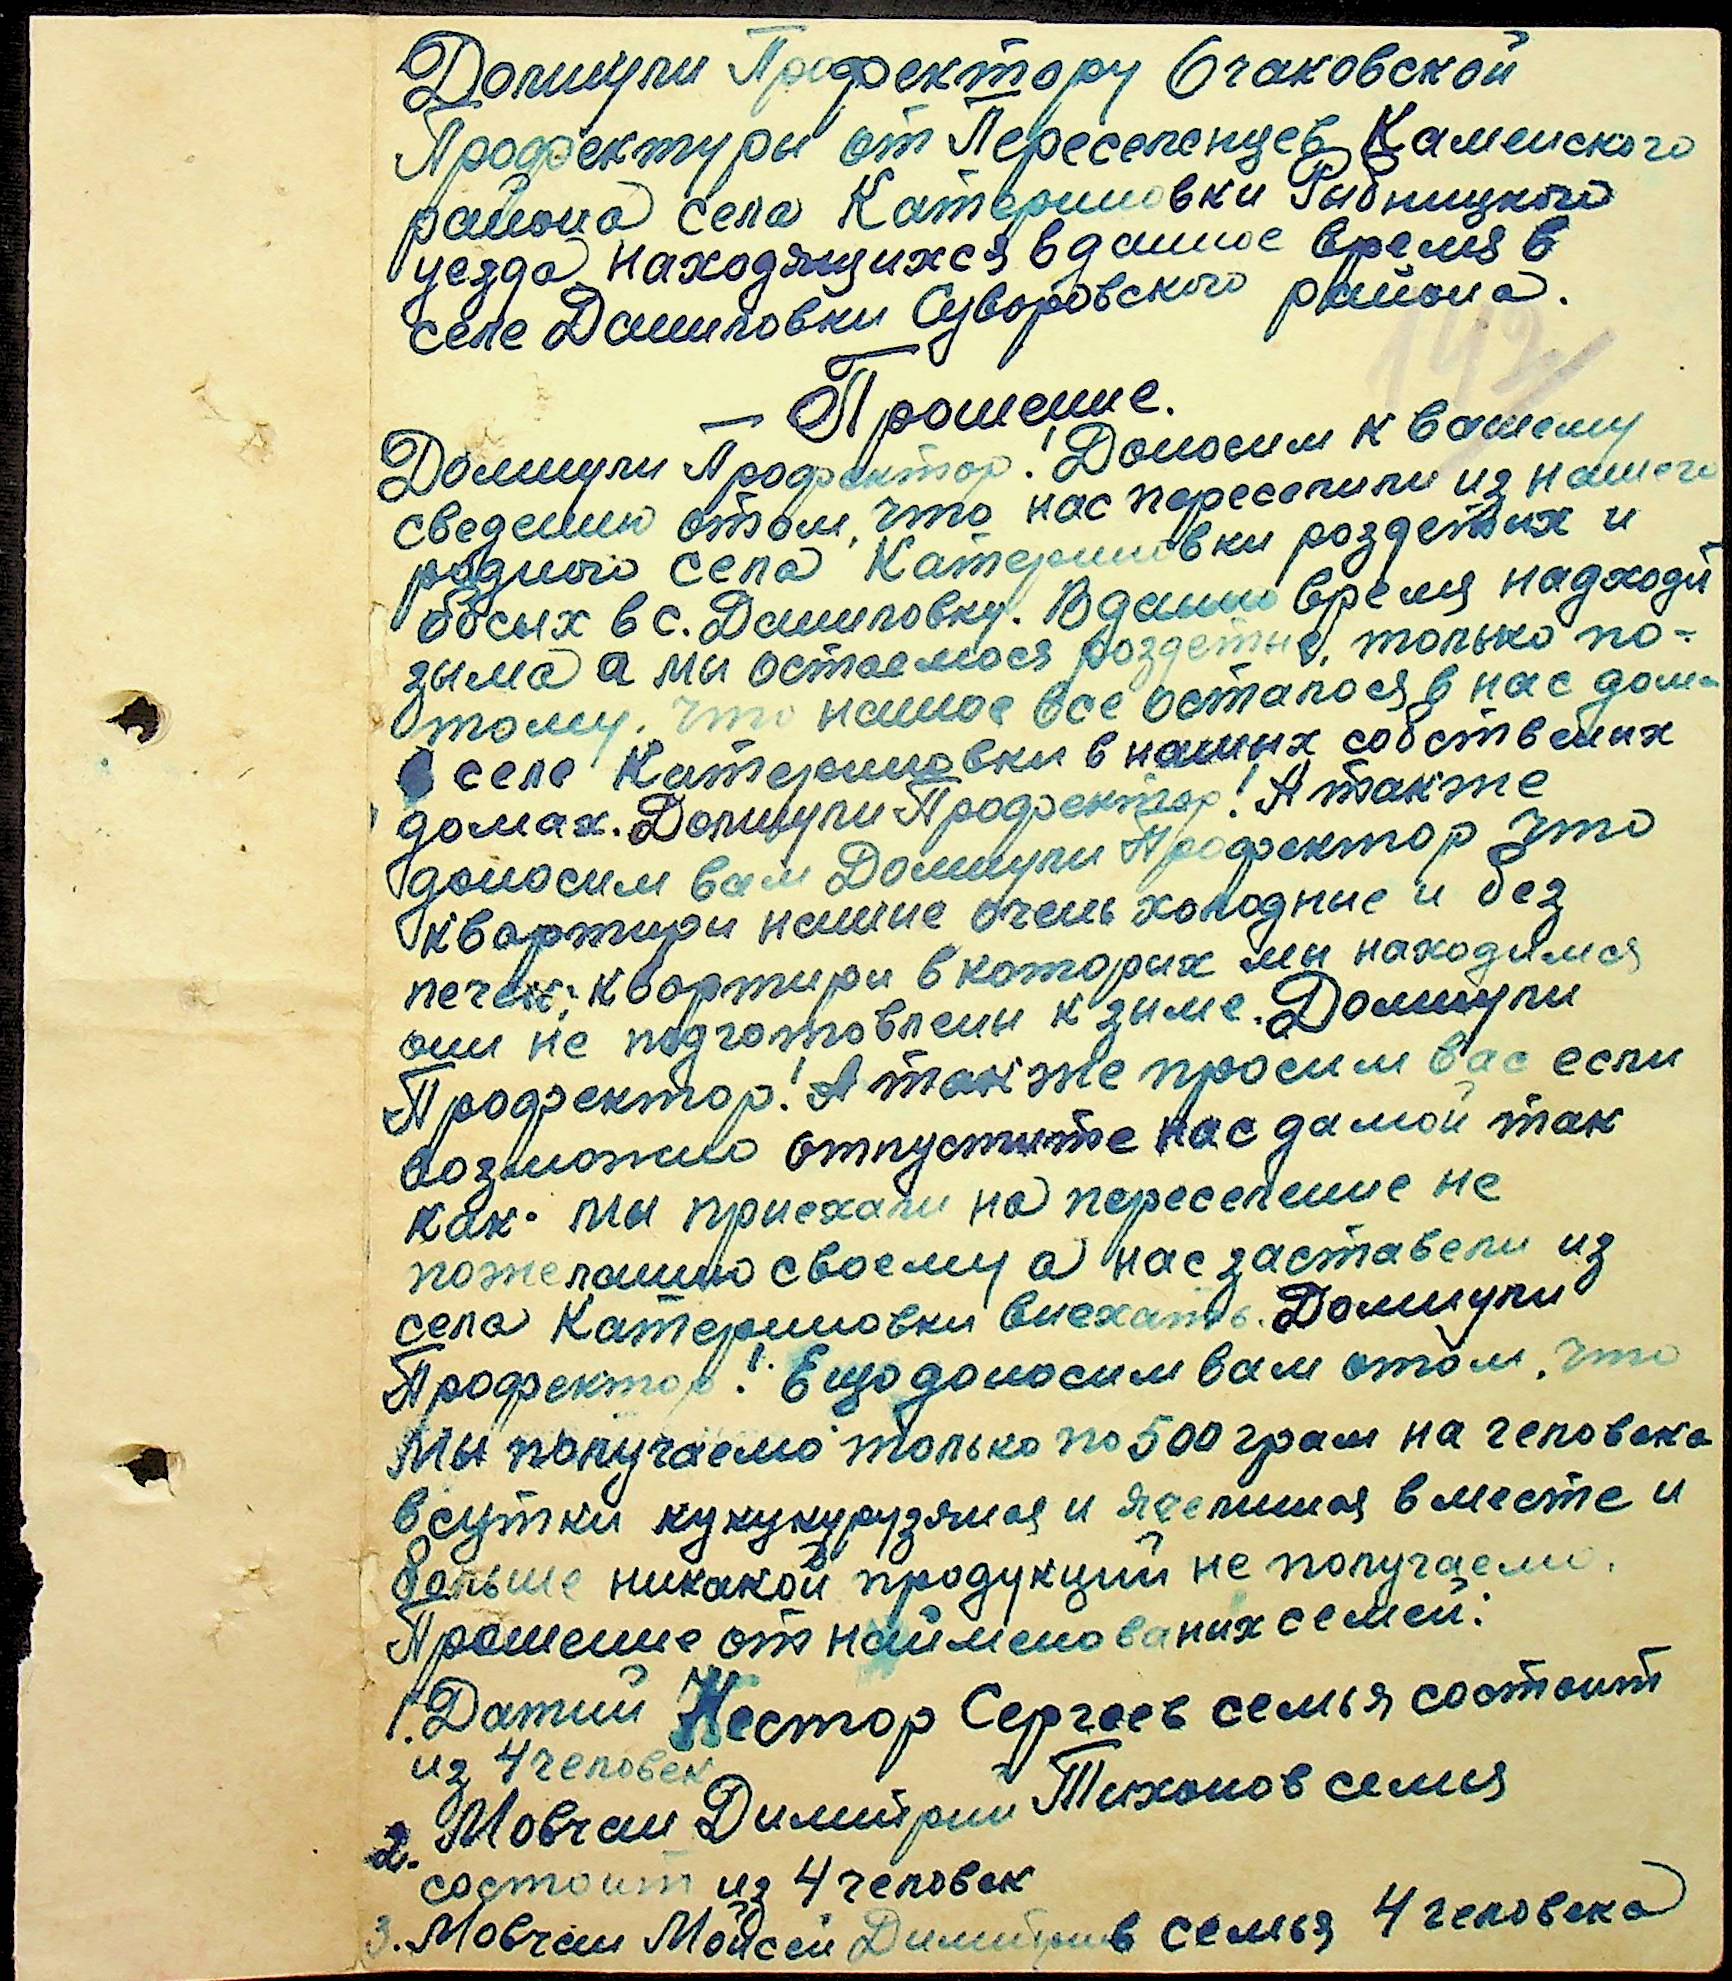 Домнули Профектору Очаковской
Профектуры от Переселенцев Каменского
района села Катериновки Рыбницкого
уезда находящихся в данное время в
селе Даниловки Суворовского района.
192
— Прошение.
Домнули Профектор! Доносим к вашему
сведению отом, что нас переселили из нашего
родного села Катериновки роздетих и
босых в с. Даниловку. В данно время надходит
зыма а мы остаемося роздетые, только по-
тому, что нашое все осталося в нас дома
в селе Катериновки в нашых собственых
домах. Домнули Профектор! А также
доносим вам Домнули Профектор что
квартири нашие очень холодние и без
печек; квартири в которих мы находимся
они не подготовлены к зиме. Домнули
Профектор! А также просим вас если
возможно отпустите нас дамой так
как мы приехали на переселение не
пожеланию своему а нас заставели из
села Катериновки виехать. Домнули
Профектор! Ещо доносим вам отом, что
мы получаемо только по 500 грам на человека
всутки кукукурузяная и ячепная вместе и
больше никакой продукций не получаемо.
Прошение от найменованих семей:
1. Датий Нестор Сергеев семья состоит
из 4 человек
2. Мовчан Димитрий Тихонов семия
состоит из 4 человек
3. Мовчан Мойсей Димитриев семья 4 человека